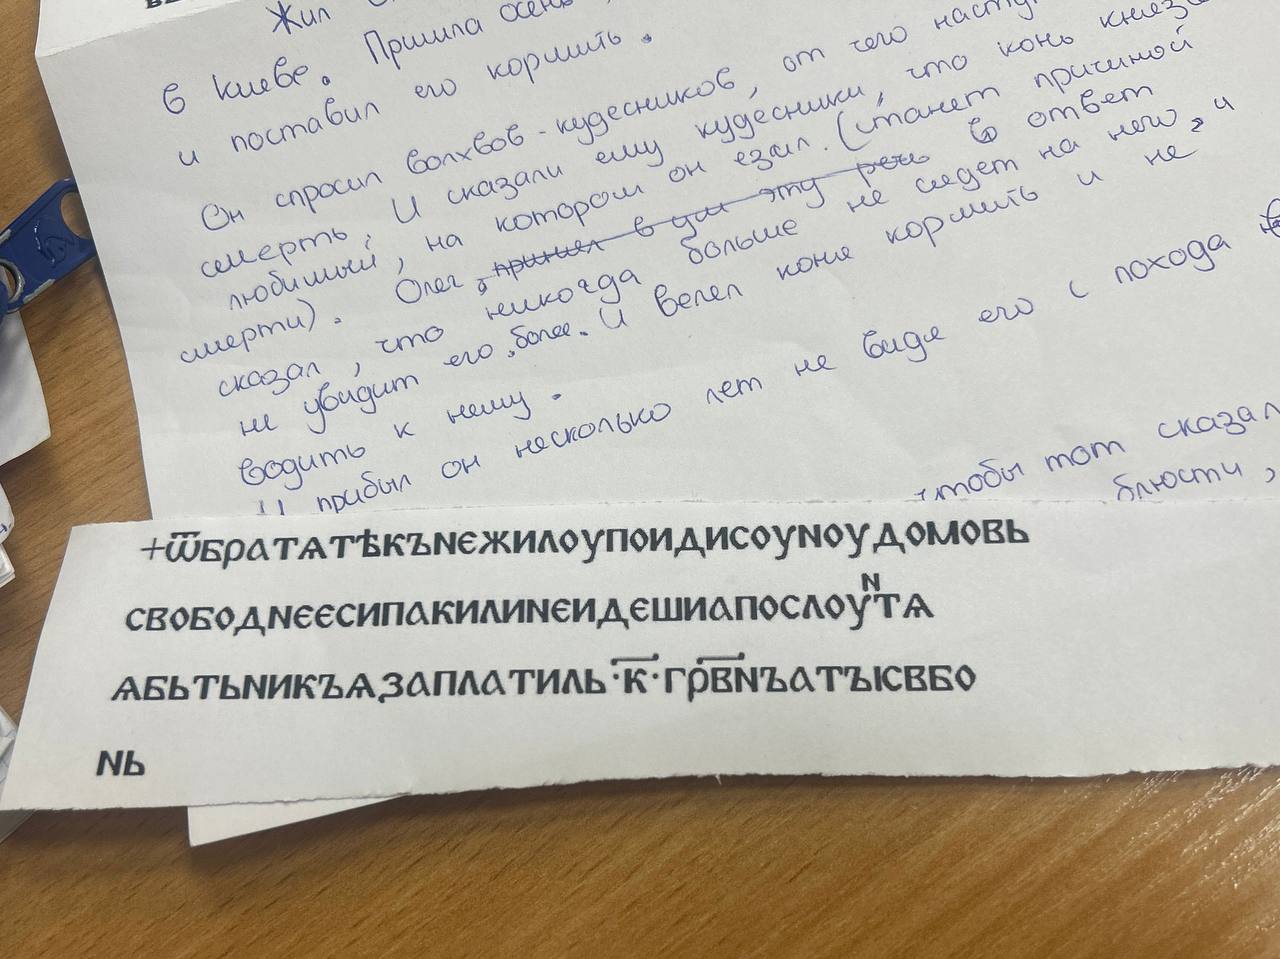 Жил
в Киеве. Пришла осень
и поставил его кормить.
Он спросил волхвов-кудесников, от чего
смерть. И сказали ему кудесники, что конь
любимый, на котором он езал. (станет причиной
смерти). Олег, принял в ум эту речь в ответ
сказал, что никогда больше не сядет на него, и
не увидит его более. И велел коня кормить и не
водить к нему.
И прибыл он несколько лет не видя его с похода
чтобы тот сказал
блюсти,
+ѾБРАТАТѢКЪNЄЖИЛОУПОИДИСОУNОУДОМОВЬ
СВОБОДNЄЄСИПАКИЛИNЄИДЄШИАПОСЛОУᴺТѦ
ѦБЬТЬNИКЪѦЗАПЛАТИЛЬ·К҃·ГРВ҃NЪАТЪІСВБО
NЬ